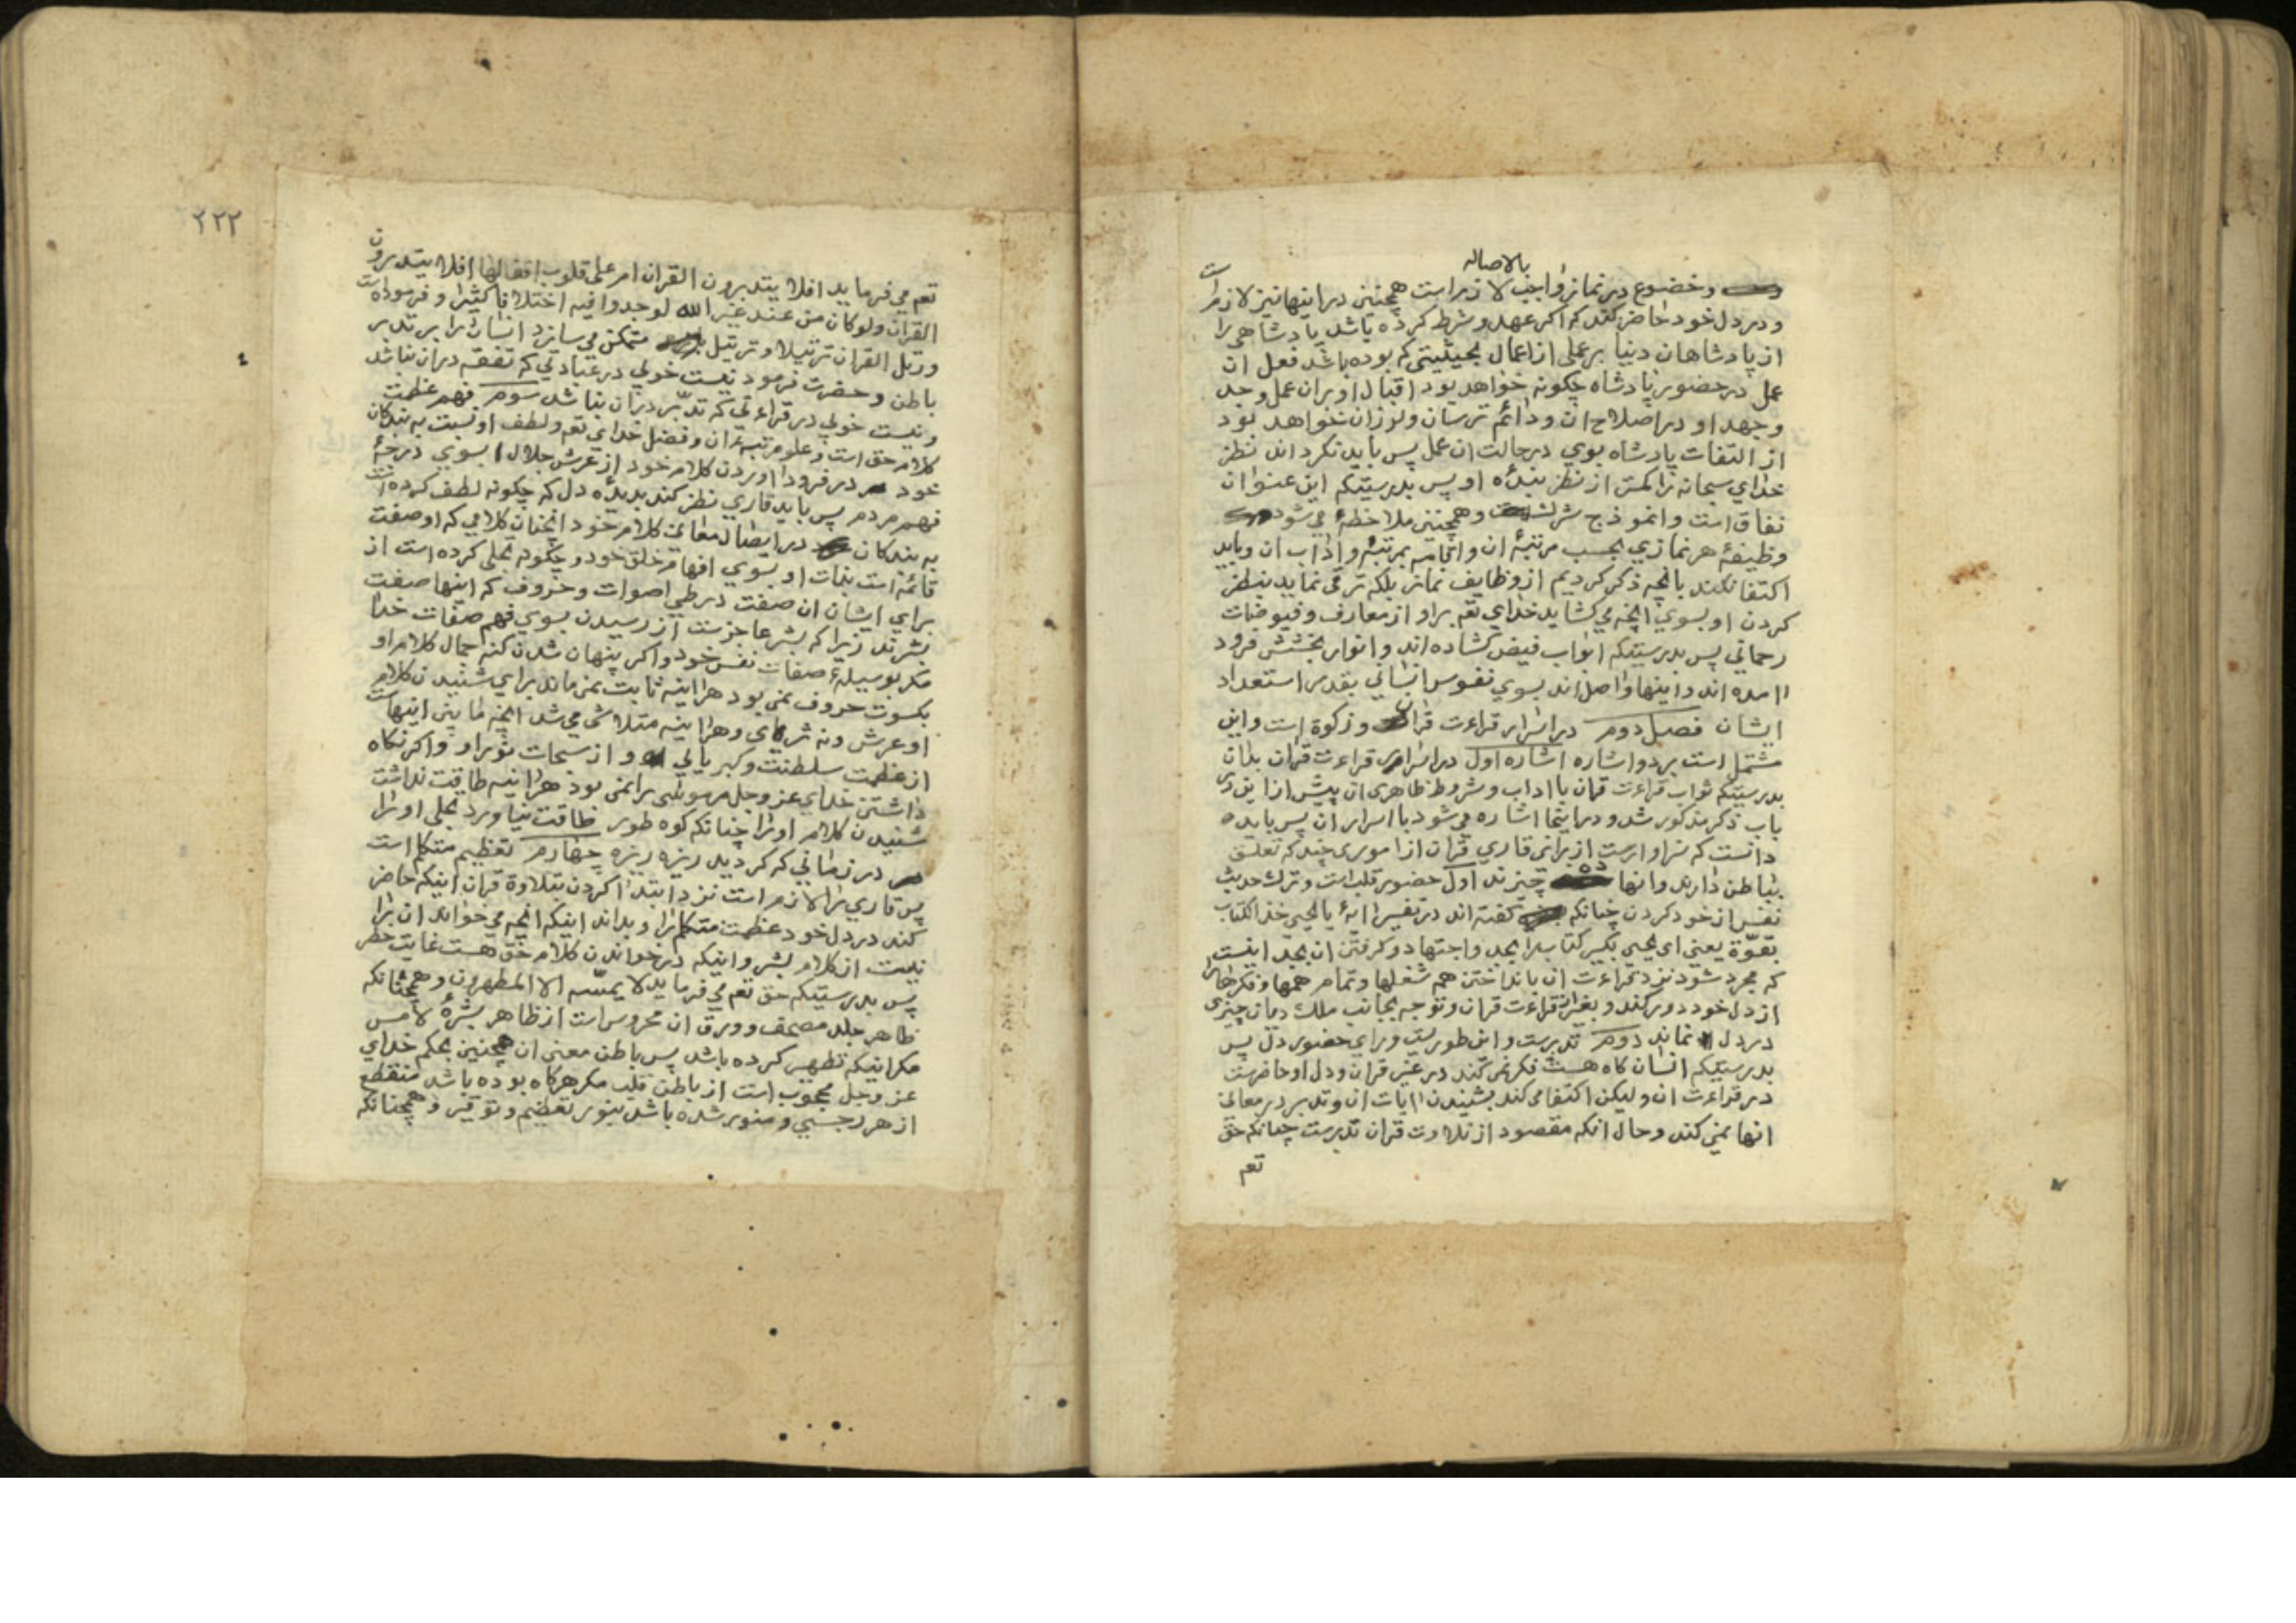 بالاصاله
وخضوع در نماز واجب لازم است همچنین در اینها نیز لازم است
و در دل خود حاضر کند که اکر عهد و شرط کرده باشد پادشاهی را
از پادشاهان دنیا بر عملی از اعمال بحیثیتی که بوده باشد فعل ان
عمل در حضور پادشاه چکونه خواهد بود اقبال او بران عمل و جد
و جهد او در اصلاح ان و دائم ترسان و لرزان خواهد بود
از التفات پادشاه بوی در حالت ان عمل پس باید نکرداند نظر
خدای سبحانه را کمتر از نظر بندهٔ او پس بدرستیکه این عنوان
نفاق است و انموذج شرک است و همچنین ملاحظهٔ می شود
وظیفهٔ هر نمازی بحسب مرتبهٔ ان واتیانه بمرتبهٔ واداب ان و باید
اکتفا نکند بانچه ذکر کردیم از وظایف نماز بلکه ترقی نماید بنظر
کردن او بسوی انچه می کشاید خدای تعم براو از معارف و فیوضات
رحمانی پس بدرستیکه ابواب فیض کشاده اند و انوار بخشش فرود
امده اند و اینها واصل اند بسوی نفوس انسانی بقدر استعداد
ایشان فصل دوم در اسرار قراءت قران و زکوة است واین
مشتمل است بر دو اشاره اشاره اول در اسرار قراءت قران بدان
بدرستیکه ثواب قراءت قران با اداب و شروط ظاهری ان پیش ازاین در
باب ذکر مذکور شد و دراینجا اشاره می شود با اسرار ان پس باید
دانست که سزاوارست از برای قاری قران از اموری چند که تعلق
بباطن دارند وانها ده چیزند اول حضور قلب است و ترک حدیث
نفس از خود کردن چنانکه کفته اند در تفسیر ایهٔ یا یحیی خذ الکتاب
بقوّة یعنی ای یحیی بکیر کتاب را بجد واجتهاد و کرفتن ان بجد اینست
که مجرد شود نزد قراءت ان بانداختن هم شغلها و تمام همها و فکرها را
از دل خود دور کند و بغیر از قراءت قران و توجه بجانب ملک دیان چیزی
در دل نماند دوم تدبرست و این طوریست ورای حضور دل پس
بدرستیکه انسان کاه هست فکر نمی کند در غیر قران و دل او حاضرست
در قراءت ان و لیکن اکتفا می کند بشنیدن ایات ان و تدبر در معانی
انها نمی کند و حال انکه مقصود از تلاوت قران تدبرست چنانکه حق
تعم
٢٢٢
تعم می فرماید افلا یتدبرون القران ام علی قلوب اقفالها افلا یتدبرون
القران ولو کان من عند غیر الله لوجدوا فیه اختلافا کثیرا و فرموده است
ورتل القران ترتیلا و ترتیل متمکن می سازد انسان را بر تدبر
باطن و حضرت فرمود نیست خوبی در عبادتی که تفقه دران نباشد
و نیست خوبی در قراءتی که تدبّر دران نباشد سوم فهم عظمت
کلام حق است و علو مرتبهٔ ان و فضل خدای تعم و لطف او نسبت به بندکان
خود در فرود اوردن کلام خود از عرش جلال بسوی درجهٔ
فهم مردم پس باید قاری نظر کند بدیدهٔ دل که چکونه لطف کرده است
به بندکان در ایصال معانی کلام خود انچنان کلامی که او صفت
قائمه است بذات او بسوی افهام خلق خود و چکونه تجلی کرده است از
برای ایشان ان صفت در طی اصوات و حروف که اینها صفت
بشرند زیرا که بشر عاجزست از رسیدن بسوی فهم صفات خدا
مکر بوسیلهٔ صفات نفس خود و اکر پنهان شدن کنه جمال کلام او
بکسوت حروف نمی بود هراینه ثابت نمی ماند برای شنیدن کلام
او عرش و نه ثری و هراینه متلاشی می شد انچه مابین اینهاست
از عظمت سلطنت و کبریایی او و از سبحات نور او و اکر نکاه
داشتن خدای عز وجل موسی را نمی بود هراینه طاقت نداشت
شنیدن کلام او را چنانکه کوه طور طاقت نیاورد تجلی او را
در زمانی که کردید ریزه ریزه چهارم تعظیم متکلم است
پس قاری را لازم است نزد ابتدا کردن بتلاوة قران اینکه حاضر
کند در دل خود عظمت متکلم را و بداند اینکه انچه می خواند ان را
نیست از کلام بشر و اینکه در خواندن کلام حق هست غایت خطر
پس بدرستیکه حق تعم می فرماید لا یمسّه الا المطهرون و همچنانکه
ظاهر جلد مصحف و ورق ان محروس است از ظاهر بشرهٔ لامس
مکر اینکه تطهیر کرده باشد پس باطن معنی ان همچنین بحکم خدای
عز وجل محجوب است از باطن قلب مکر هرکاه بوده باشد منقطع
از هر رجسی و منور شده باشد بنور تعظیم و توقیر و همچنانکه